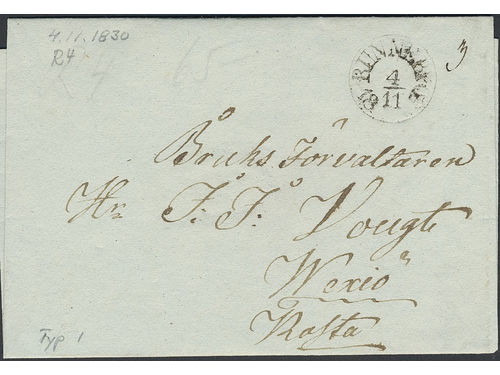 4.11.1830
R4
65
RUNNEBY
4
11
3
Bruks Förvaltaren
Hr J: J: Vougt
Wexiö
Kosta
Typ 1